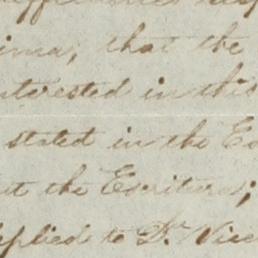 ima, that the
nterested in this
stated in the Es
ut the Escritura;
pplied to Dr. Vice